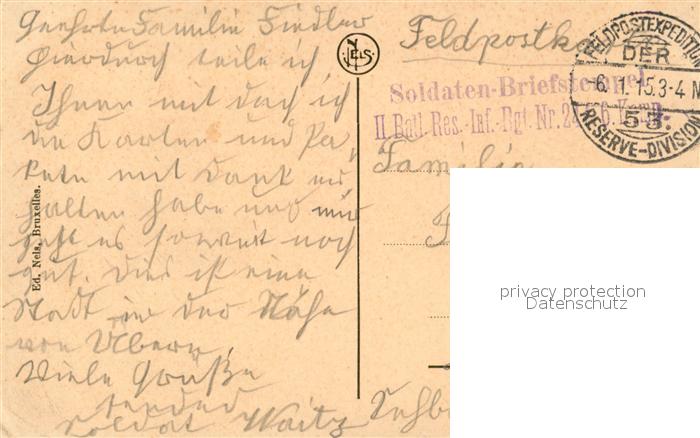 Geehrte Familie Fiedler
Hierdurch teile ich
Ihnen mit daß ich
die Karten und Pa-
kete mit Dank er-
halten habe und mir
geht es soweit noch
gut. Dies ist eine
Stadt in der Nähe
von Übern.
Viele Grüße
sendet
Soldat Waitz
Ed. Nels, Bruxelles.
NELS
Feldpostk
FELDPOSTEXPEDITION
DER
-6.1.15.3-4 N
53.
RESERVE-DIVISION
Soldaten-Briefstempel
II. Batl. Res.-Inf.-Rgt. Nr. 24 6. Komp.
Familie
F
privacy protection
Datenschutz